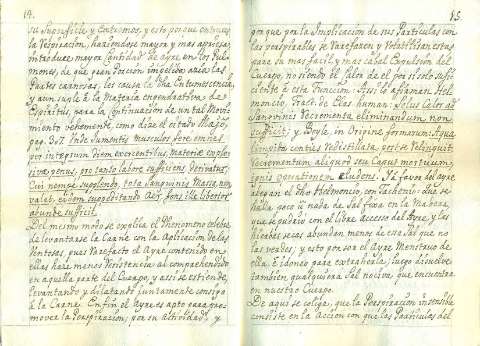 14.
su Superficie, y Entornos, y esto porque entonces
la Respiracion, haciendose mayor y mas apriesa,
introduce mayor Cantidad de ayre en los Pul-
mones, de que gran Porcion impelida acia las
Partes carnosas, les causa la dha Entumescencia,
y aun suple à la Materia de
Espiritus, para la Continuacion de un tal Movi-
miento vehemente, como dize el citado Mayo,
pag. 307. Unde Jumentis musculos fere omnes
per integrum diem exercentibus, materiæ explo-
sivæ penus, pro tanto labore sufficiens derivatur,
Cui nempe supplendo, tota Sanguinis Massa, non
valeb, eidem suppeditando Aer, fons ille libertor
abunde sufficit.
Del mismo modo se explica el Phenomeno celebre
de levantarse la Carne con la Aplicacion de las
Ventosas, pues rarefacto el Ayre contenido en
ellas hace menos Resistencia al comprehendido
en aquella parte del Cuerpo, y assi se estiende,
levantando y dilatando juntamente consigo
à la Carne. Enfin el Ayre es apto para pro-
mover la Perspiracion, por su Actividad, y
15.
por que por la Implicacion de sus Particulas con
las perspirables se Rarefazen y Volatilizan estas
para su mas facil, y mas cabal Expulsion del
Cuerpo, no siendo el Calor de el por si solo sufi-
ciente à esta Funcion. Assi lo afirman Hel-
moncio, Tract. de Blas human: Solus Calor ad
Sanguinis decrementa eliminandum, non
sufficit: y Boyle, in Origine formarum: Aqua
limpita centies redistillata, post se relinquit
decrementum aliquod seu Caput mortuum,
ignis operationem eludens. Y à favor del ayre
alegan el dho Helmoncio, con Tachenio: Que se
halla poco ù nada de Sal fixa en la Madera,
que se pudrió con el libre accesso del Ayre, y las
Hierbas secas abunden menos de esta Sal que no
las verdes; y esto por ser el Ayre Menstruo de
ella. E idoneo para extraherla; luego dissuelve
tambien qualquiera Sal nociva que encuentra
en nuestro Cuerpo.
De aqui se colige, que la Perspiracion insensible
consiste en la Accion con que las Particulas del